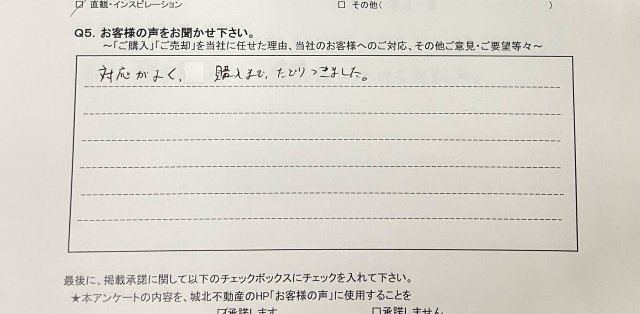 ☑ 直観・インスピレーション ☐ その他( )
Q5. お客様の声をお聞かせ下さい。
～「ご購入」「ご売却」を当社に任せた理由、当社のお客様へのご対応、その他ご意見・ご要望等々～
対応がよく、 購入まで、たどりつきました。
最後に、掲載承諾に関して以下のチェックボックスにチェックを入れて下さい。
★本アンケートの内容を、城北不動産のHP「お客様の声」に使用することを
☑承諾します ☐承諾しません